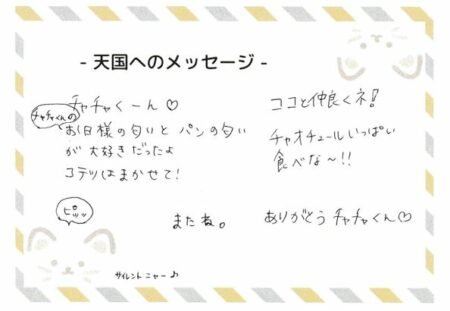 - 天国へのメッセージ -
チャチャくーん♡
チャチャくんの
お日様の匂いと パンの匂い
が 大好きだったよ
コテツはまかせて!
ココと仲良くネ!
チャオチュールいっぱい
食べな〜!!
ピッッ
またね。
ありがとう チャチャくん♡
サイレントニャー♪